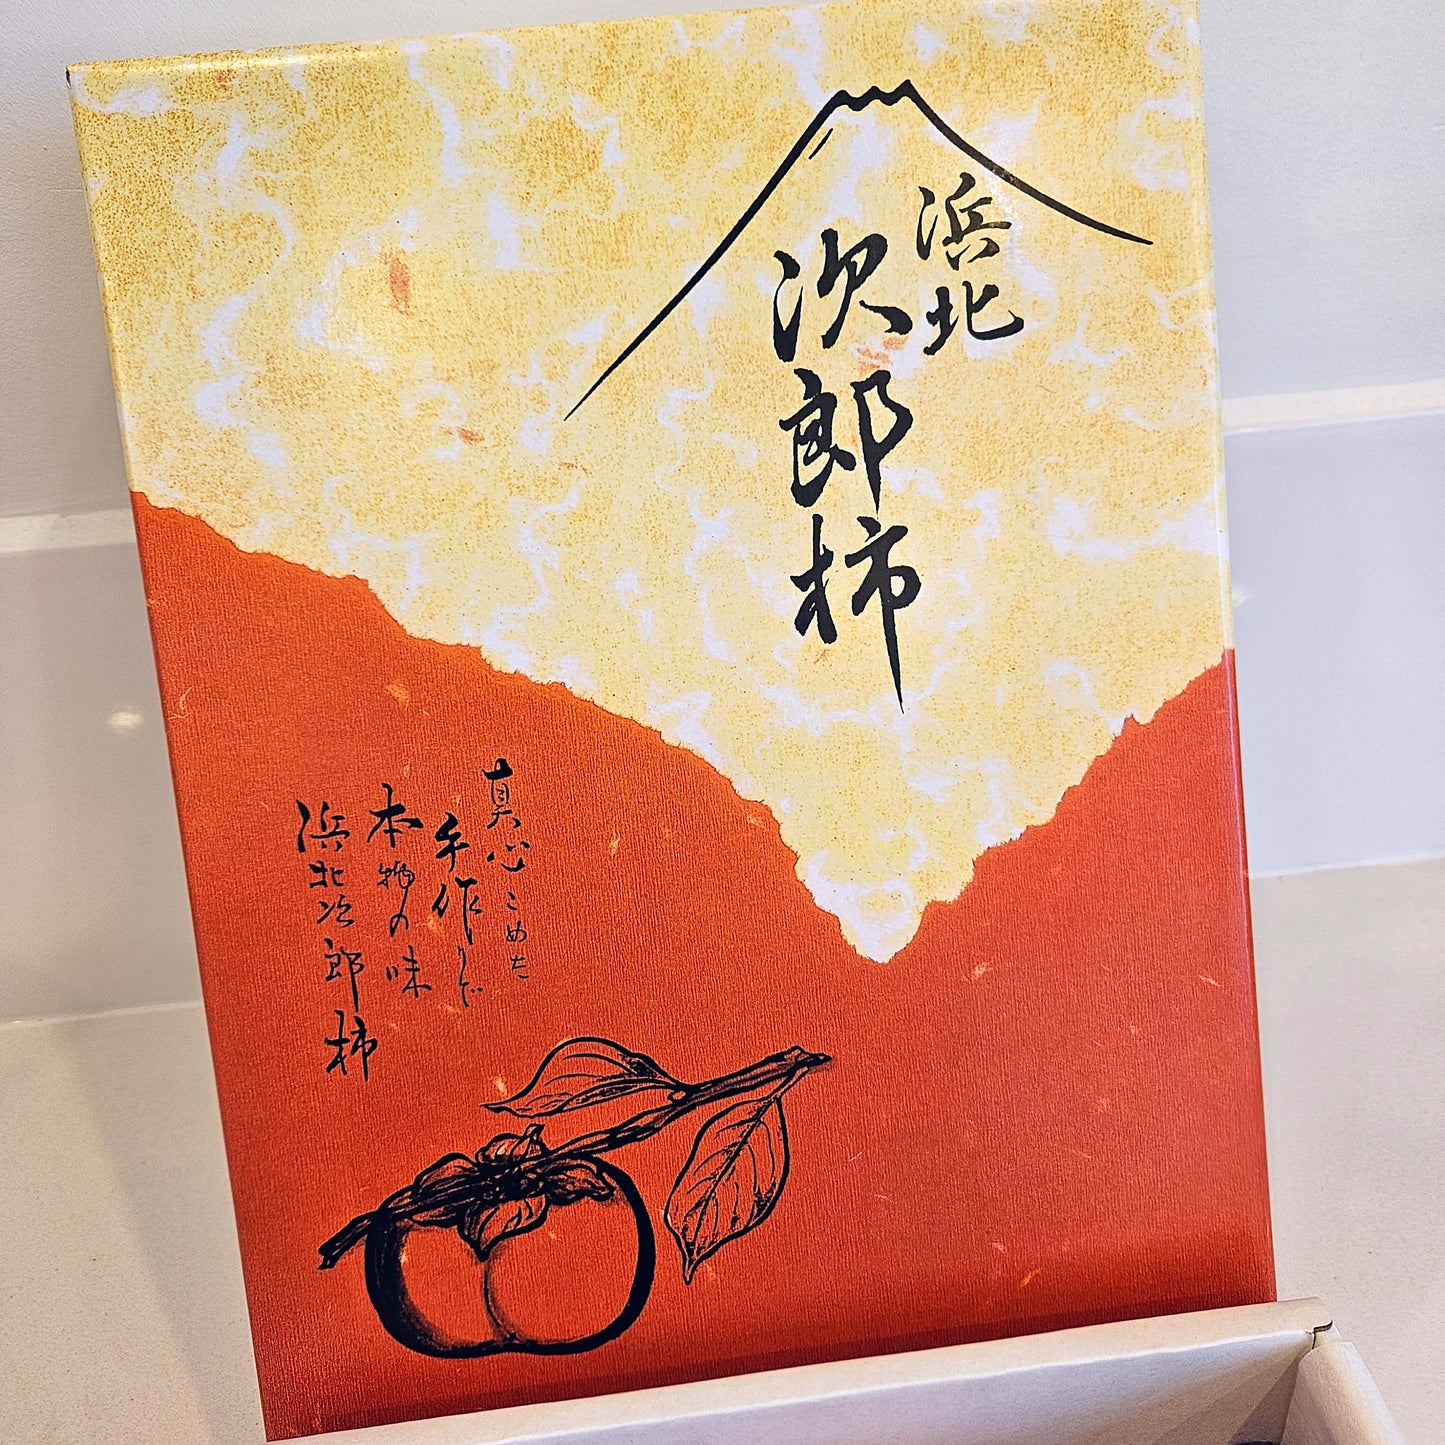 浜北
次郎柿
真心こめた
手作りで
本物の味
浜北次郎柿